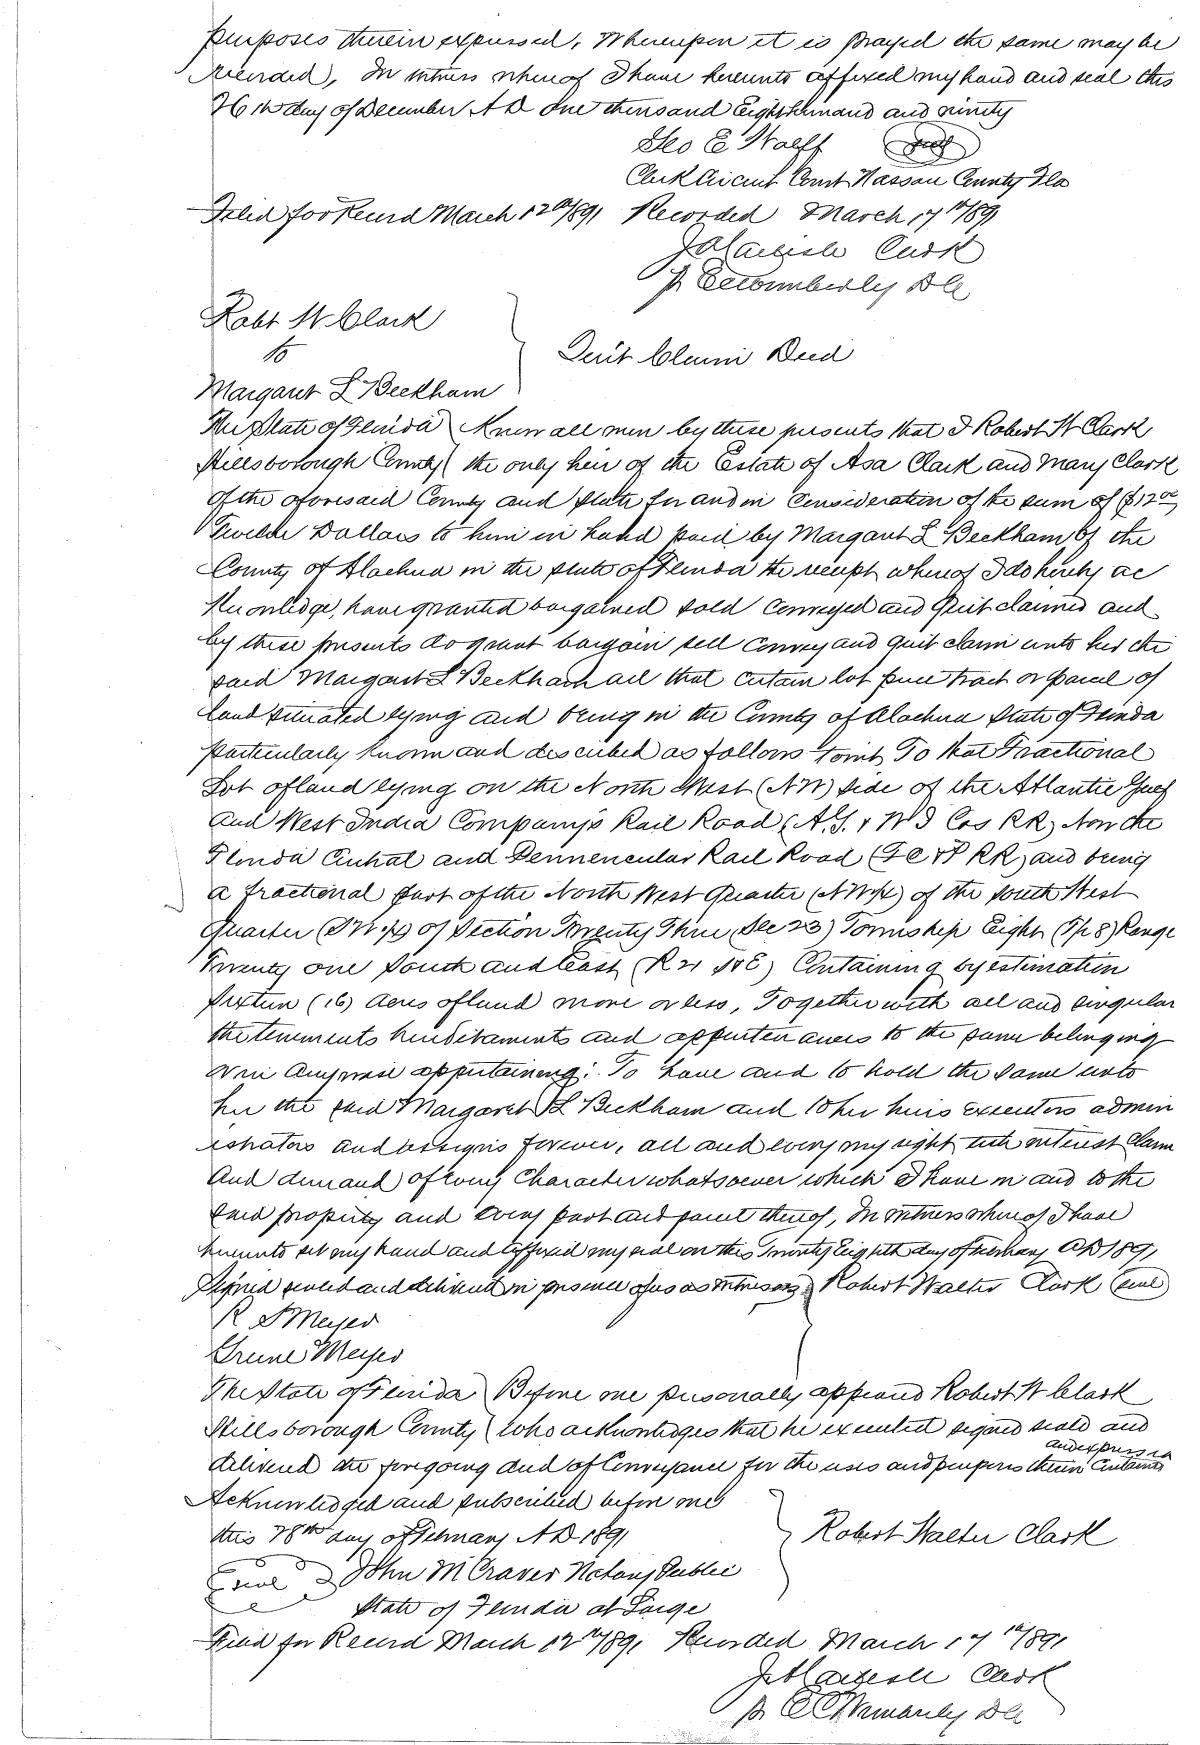 purposes therein expressed, Whereupon it is prayed the same may be
recorded, In witness whereof I have hereunto affixed my hand and seal this
26th day of December A D One thousand Eight hundred and ninety
Geo E Wolff seal
Clerk Circuit Court Nassau County Fla
Filed for Record March 12th 1891 Recorded March 17th/891
J A Carlisle Clerk
p E C Wimberly D C
Robt W. Clark
to
Quit Claim Deed
Margaret L Beckham
The State of Florida Know all men by these presents that I Robert W Clark
Hillsborough County the only heir of the Estate of Asa Clark and Mary Clark
of the aforesaid County and State for and in consideration of the sum of ($12 00)
Twelve Dollars to him in hand paid by Margaret L Beckham of the
County of Alachua in the State of Florida the receipt whereof I do hereby ac
Knowledge, have granted bargained sold conveyed and Quit claimed and
by these presents do grant bargain sell convey and quit claim unto her the
said Margaret L Beckham all that certain lot piece tract or parcel of
land situated lying and being in the County of Alachua State of Florida
particularly known and described as follows towit, To that Fractional
Lot of land lying on the North West (NW) side of the Atlantic Gulf
and West India Company's Rail Road (A.G. & W I Cos RR) Now the
Florida Central and Pennencular Rail Road (F C & P RR) and being
a fractional part of the North West Quarter (NW¼) of the South West
Quarter (SW¼) of Section Twenty Three (Sec 23) Township Eight (Tp 8) Range
Twenty one South and East (R 21 S&E) Containing by estimation
sixteen (16) acres of land more or less, Together with all and singular
the tenements hereditaments and appurtenances to the same belonging
or in anywise appertaining: To have and to hold the same unto
her the said Margaret L Beckham and to her heirs executors admin
istrators and assigns forever, all and every my right title interest claim
and demand of every Character whatsoever which I have in and to the
said property and every part and parcel thereof, In witness whereof I have
hereunto set my hand and affixed my seal on this Twenty Eighth day of February AD 1891
Signed sealed and delivered in presence of us as witnesses Robert Walter Clark (seal)
R S Meyer
Meyer
The State of Florida Before me personally appeared Robert W Clark
Hillsborough County who acknowledges that he executed signed seald and
and expressed
delivered the foregoing deed of Conveyance for the uses and purposes therein contained
Acknowledged and subscribed before me
this 28th day of February A D 1891
Robert Walter Clark
seal John M Craver Notary Public
State of Florida at Large
Filed for Record March 12th/891 Recorded March 17th/891
J A Carlisle Clerk
p E C Wimberly D C